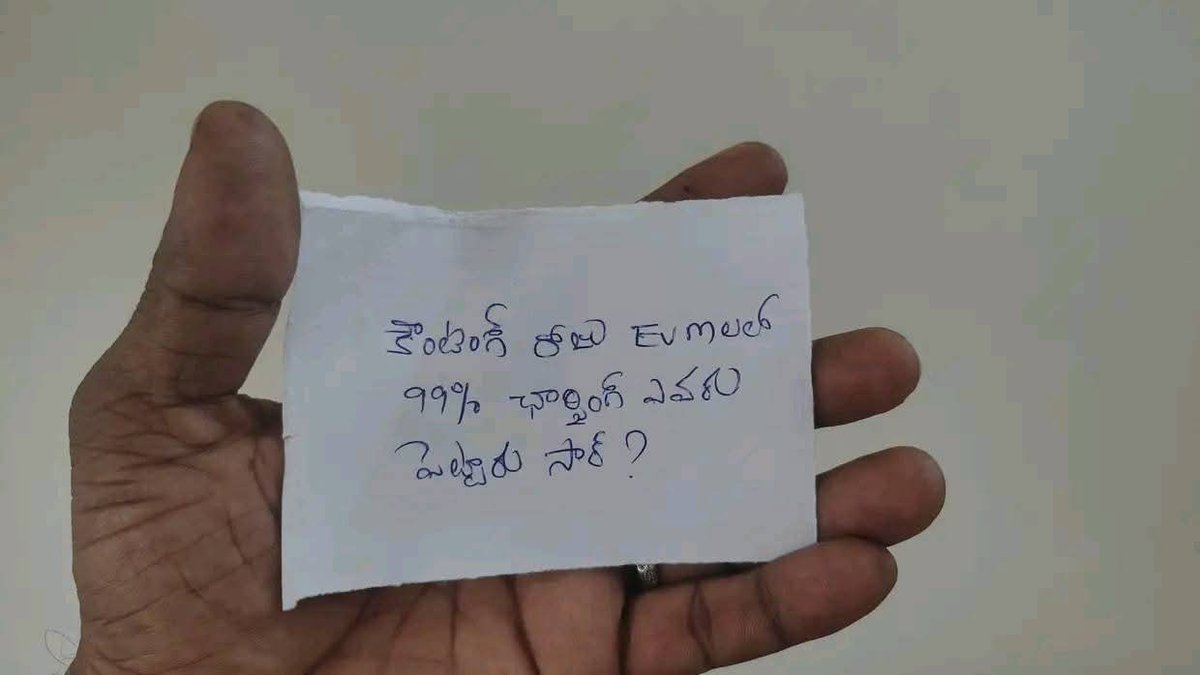 కౌంటింగ్ రోజు EVMలలో
99% ఛార్జింగ్ ఎవరు
పెట్టారు సార్ ?